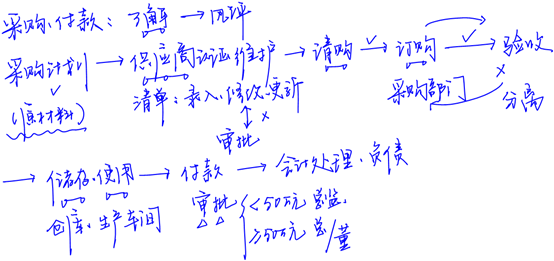 采购、付款：了解 → 风评
采购计划 → 供应商认证维护 → 请购 → 订购 → 验收
(原材料) 清单：录入、修改、更新 采购部门 分离
审批
→ 储存、使用 → 付款 → 会计处理、负债
仓库、生产车间 审批 <50万元 总监
≥50万元 总/董